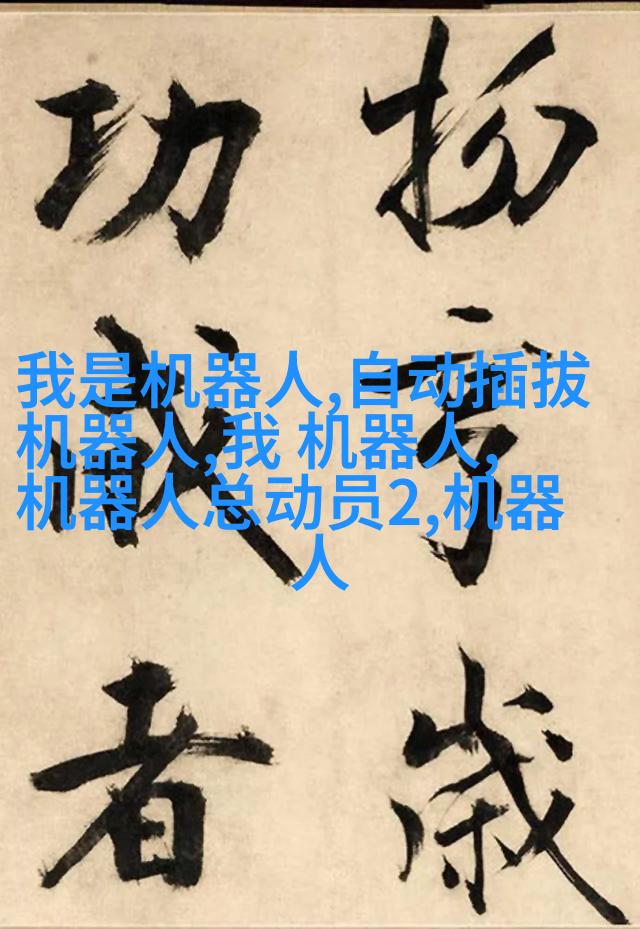 物亨歲
功成者
我是机器人,自动插拔
机器人,我 机器人,
机器人总动员2,机器
人